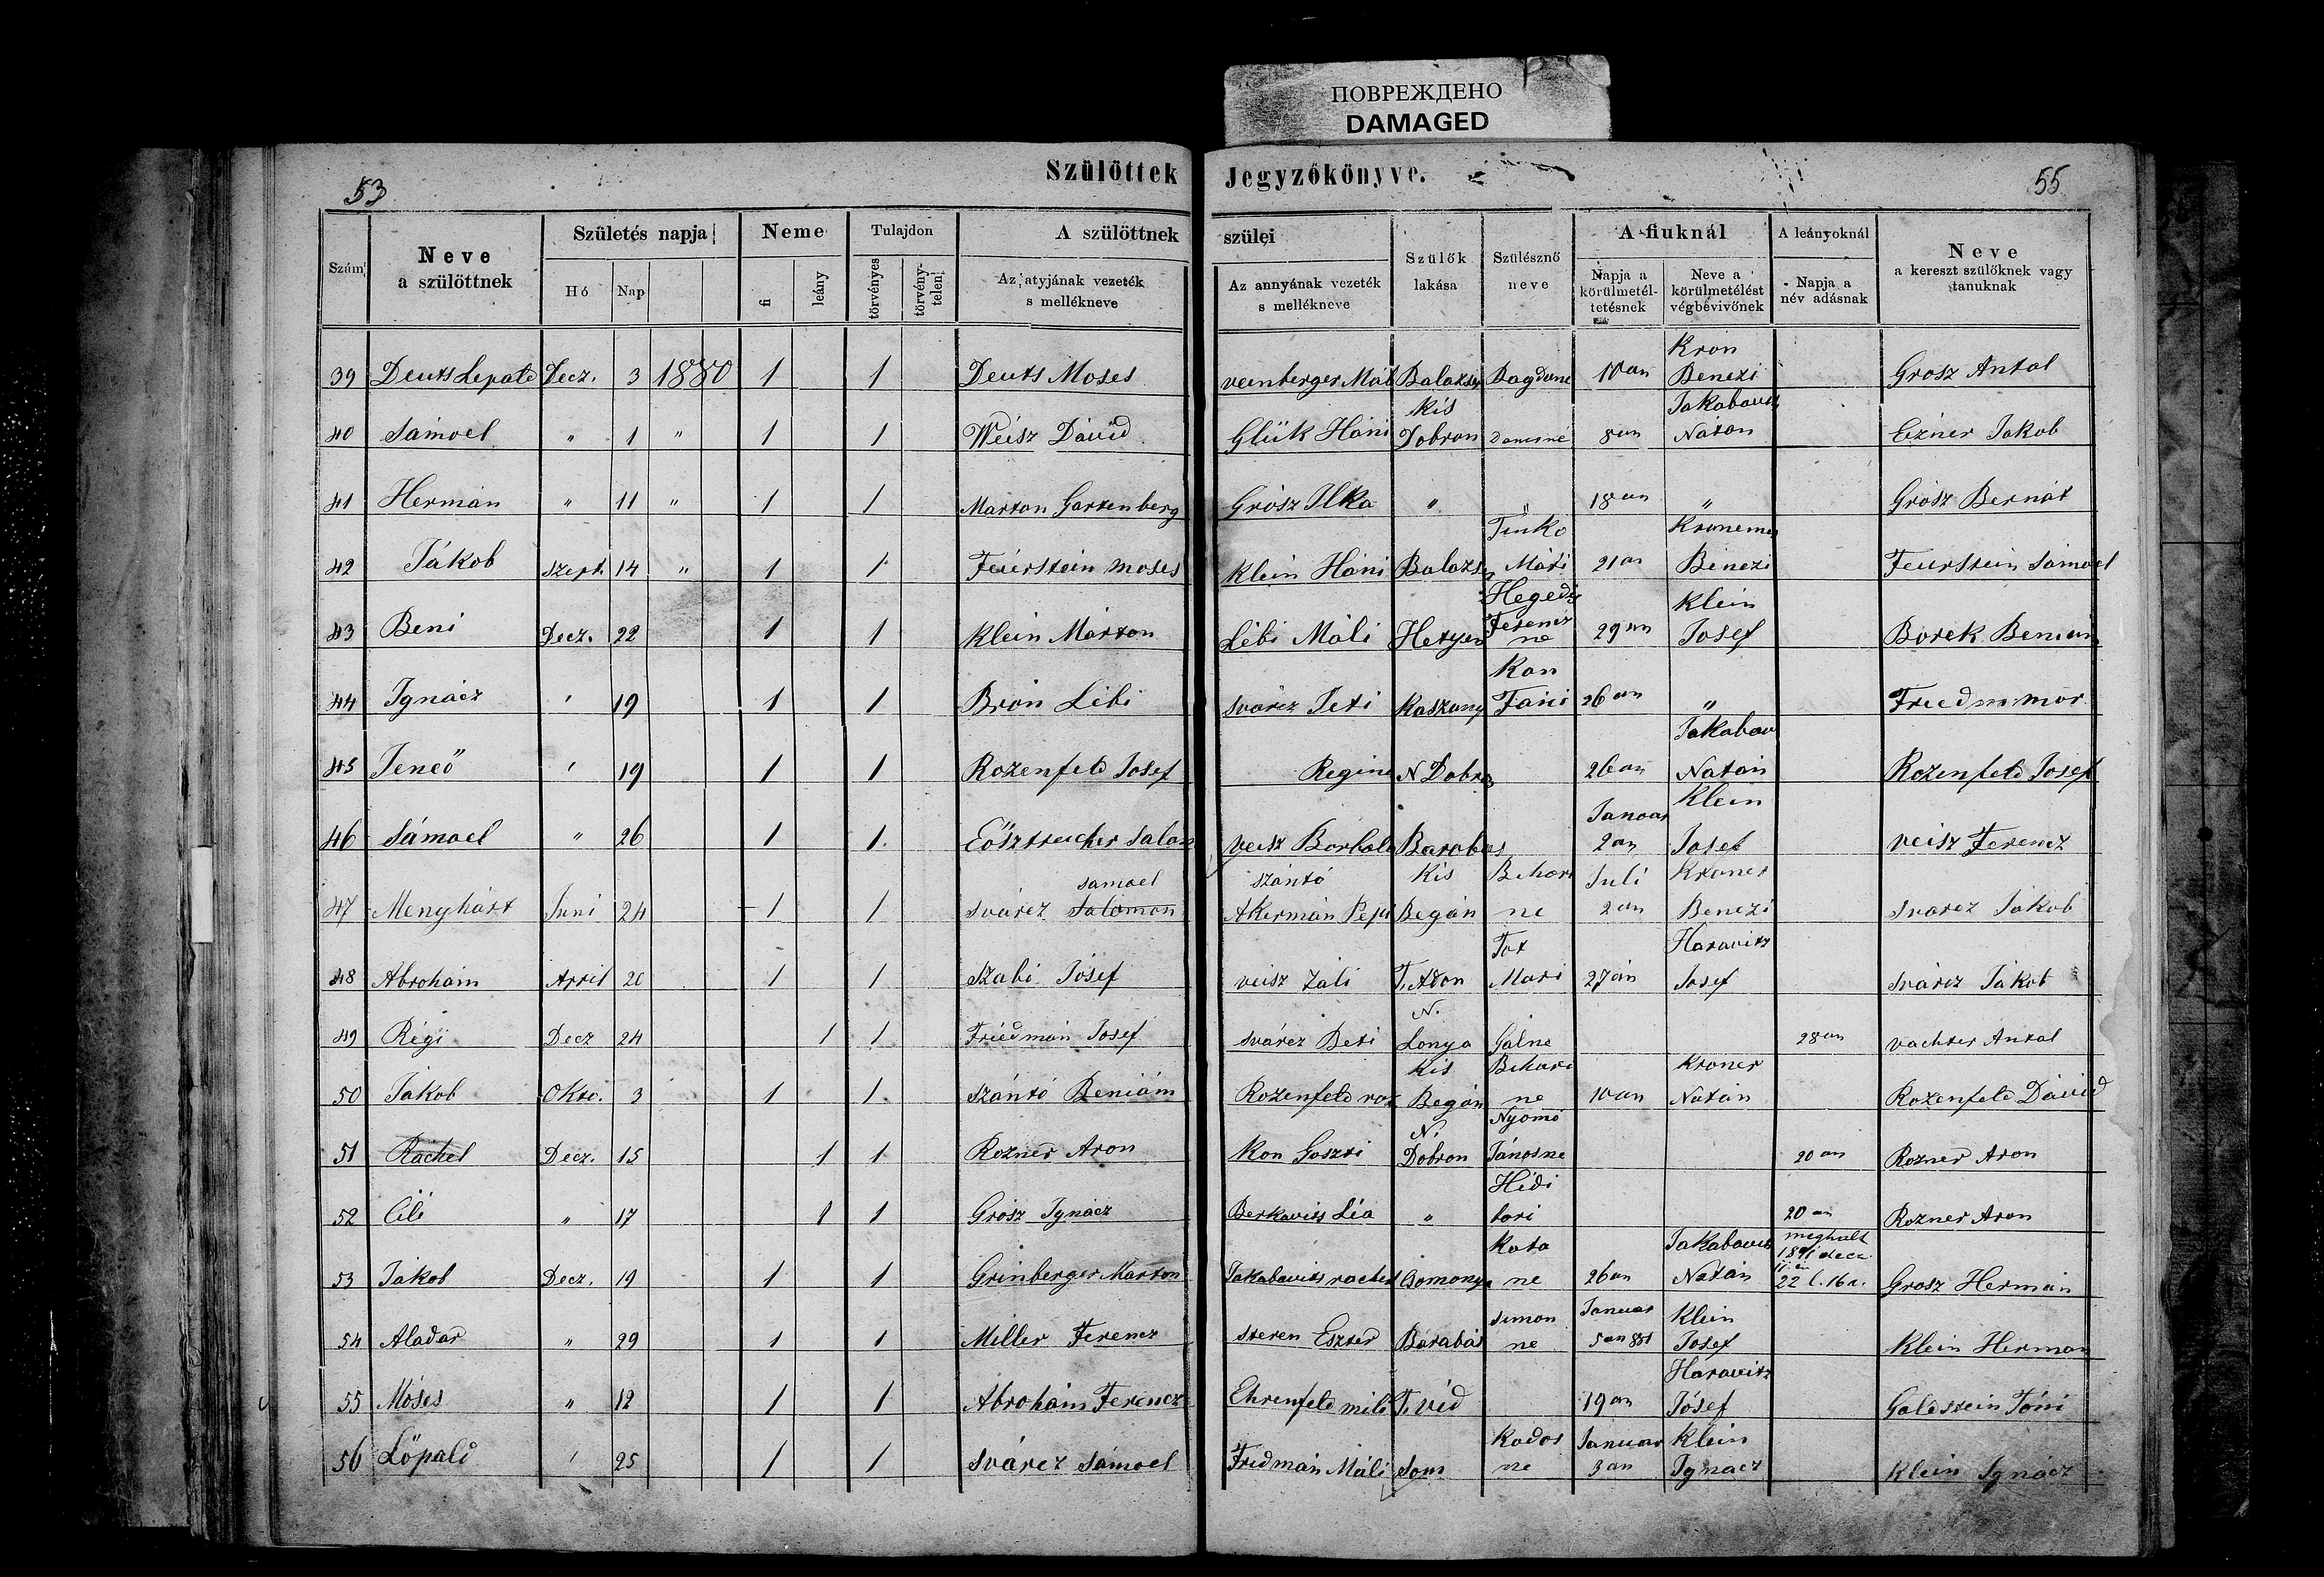 ПОВРЕЖДЕНО
DAMAGED
Szülöttek Jegyzőkönyve.
53
55
Szám
Neve a szülöttnek
Születés napja
Hó Nap
Neme
fi leány
Tulajdon
törvényes törvénytelen
A szülöttnek szülei
Az atyjának vezeték s mellékneve
Az annyának vezeték s mellékneve
Szülők lakása
Szülésznő neve
A fiuknál
Napja a körülmetéltetésnek
Neve a körülmetélést végbevivőnek
A leányoknál
Napja a név adásnak
Neve a kereszt szülőknek vagy tanuknak
39 Deuts Lepold Decz. 3 1880 1 1 Deuts Moses veinberger Mál Balazser Bagdane 10an Kron Benezi Grosz Antal
40 Sámoel " 1 " 1 1 Weisz Dávid Glük Háni Kis Dobron 8an Jakabovits Natan Eizner Jakob
41 Hermán " 11 " 1 1 Marton Gartenberg Grósz Ilka " " 18an " Grósz Bernát
42 Jákob Szept. 14 " 1 1 Feuerstein Moses Klein Háni Balazser Tinko Mári 21an Benezi Feurstein Sámoel
43 Beni Decz. 22 1 1 Klein Márton Lébi Máli Hetyen Hegedüs Ferencz ne 29an Klein Josef Borek Beniam
44 Ignácz " 19 1 1 Brón Lébi Svárcz Jeti Kaszony Kan Fani 26an " Friedm mor
45 Jeneö " 19 1 1 Rozenfeld Josef Regine N Dobron 26an Jakabov Natán Rozenfeld Josef
46 Sámoel " 26 1 1. veisz Borbala Barabas Januar 2an Klein Josef veisz Ferencz
47 Menyhárt Juni 24 1 1 Svárcz Salomon samoel szántó Akermán Pepi Kis Begán Behari ne Juli 2an Kroner Benezi Svarcz Jákob
48 Abrohám April 20 1 1 Szabi Jósef veisz Záli T. Adon Tot Mari 27án Haravitz Josef Svárcz Jákob
49 Régi Decz 24 1 1 Friedmán Josef Svárcz Beti N. Lonya Gálne 28an vachter Antal
50 Jákob Okto. 3 1 1 Szántó Beniám Rozenfeld roz Kis Begán Behari ne 10an Kroner Natán Rozenfeld Dávid
51 Rachel Decz. 15 1 1 Rozner Aron Kon Goszti N. Dobron Nyomó Jánosne 20an Rozner Aron
52 Cili " 17 1 1 Grósz Ignácz Berkovits Léa " Hidi bori 20an Rozner Aron
53 Jákob Decz. 19 1 1 Grinberger Marton Jakabovits rachel Csomonya Kota ne 26an Jakabovits Natán meghalt 1891 decz. 22 l. 16 a. Grosz Hermán
54 Aladar " 29 1 1 Miller Ferencz Steren Eszter Barabás Simon ne Januar 5an 881 Klein Josef Klein Herman
55 Móses " 12 1 1 Abrohám Ferencz Ehrenfeld mili T. Vid 19an Háravitz Jósef Goldstein Tóni
56 Löpald " 25 1 1 Svárcz Sámoel Fridmán Máli Som Kodos ne Januar 3an Klein Ignacz Klein Ignácz